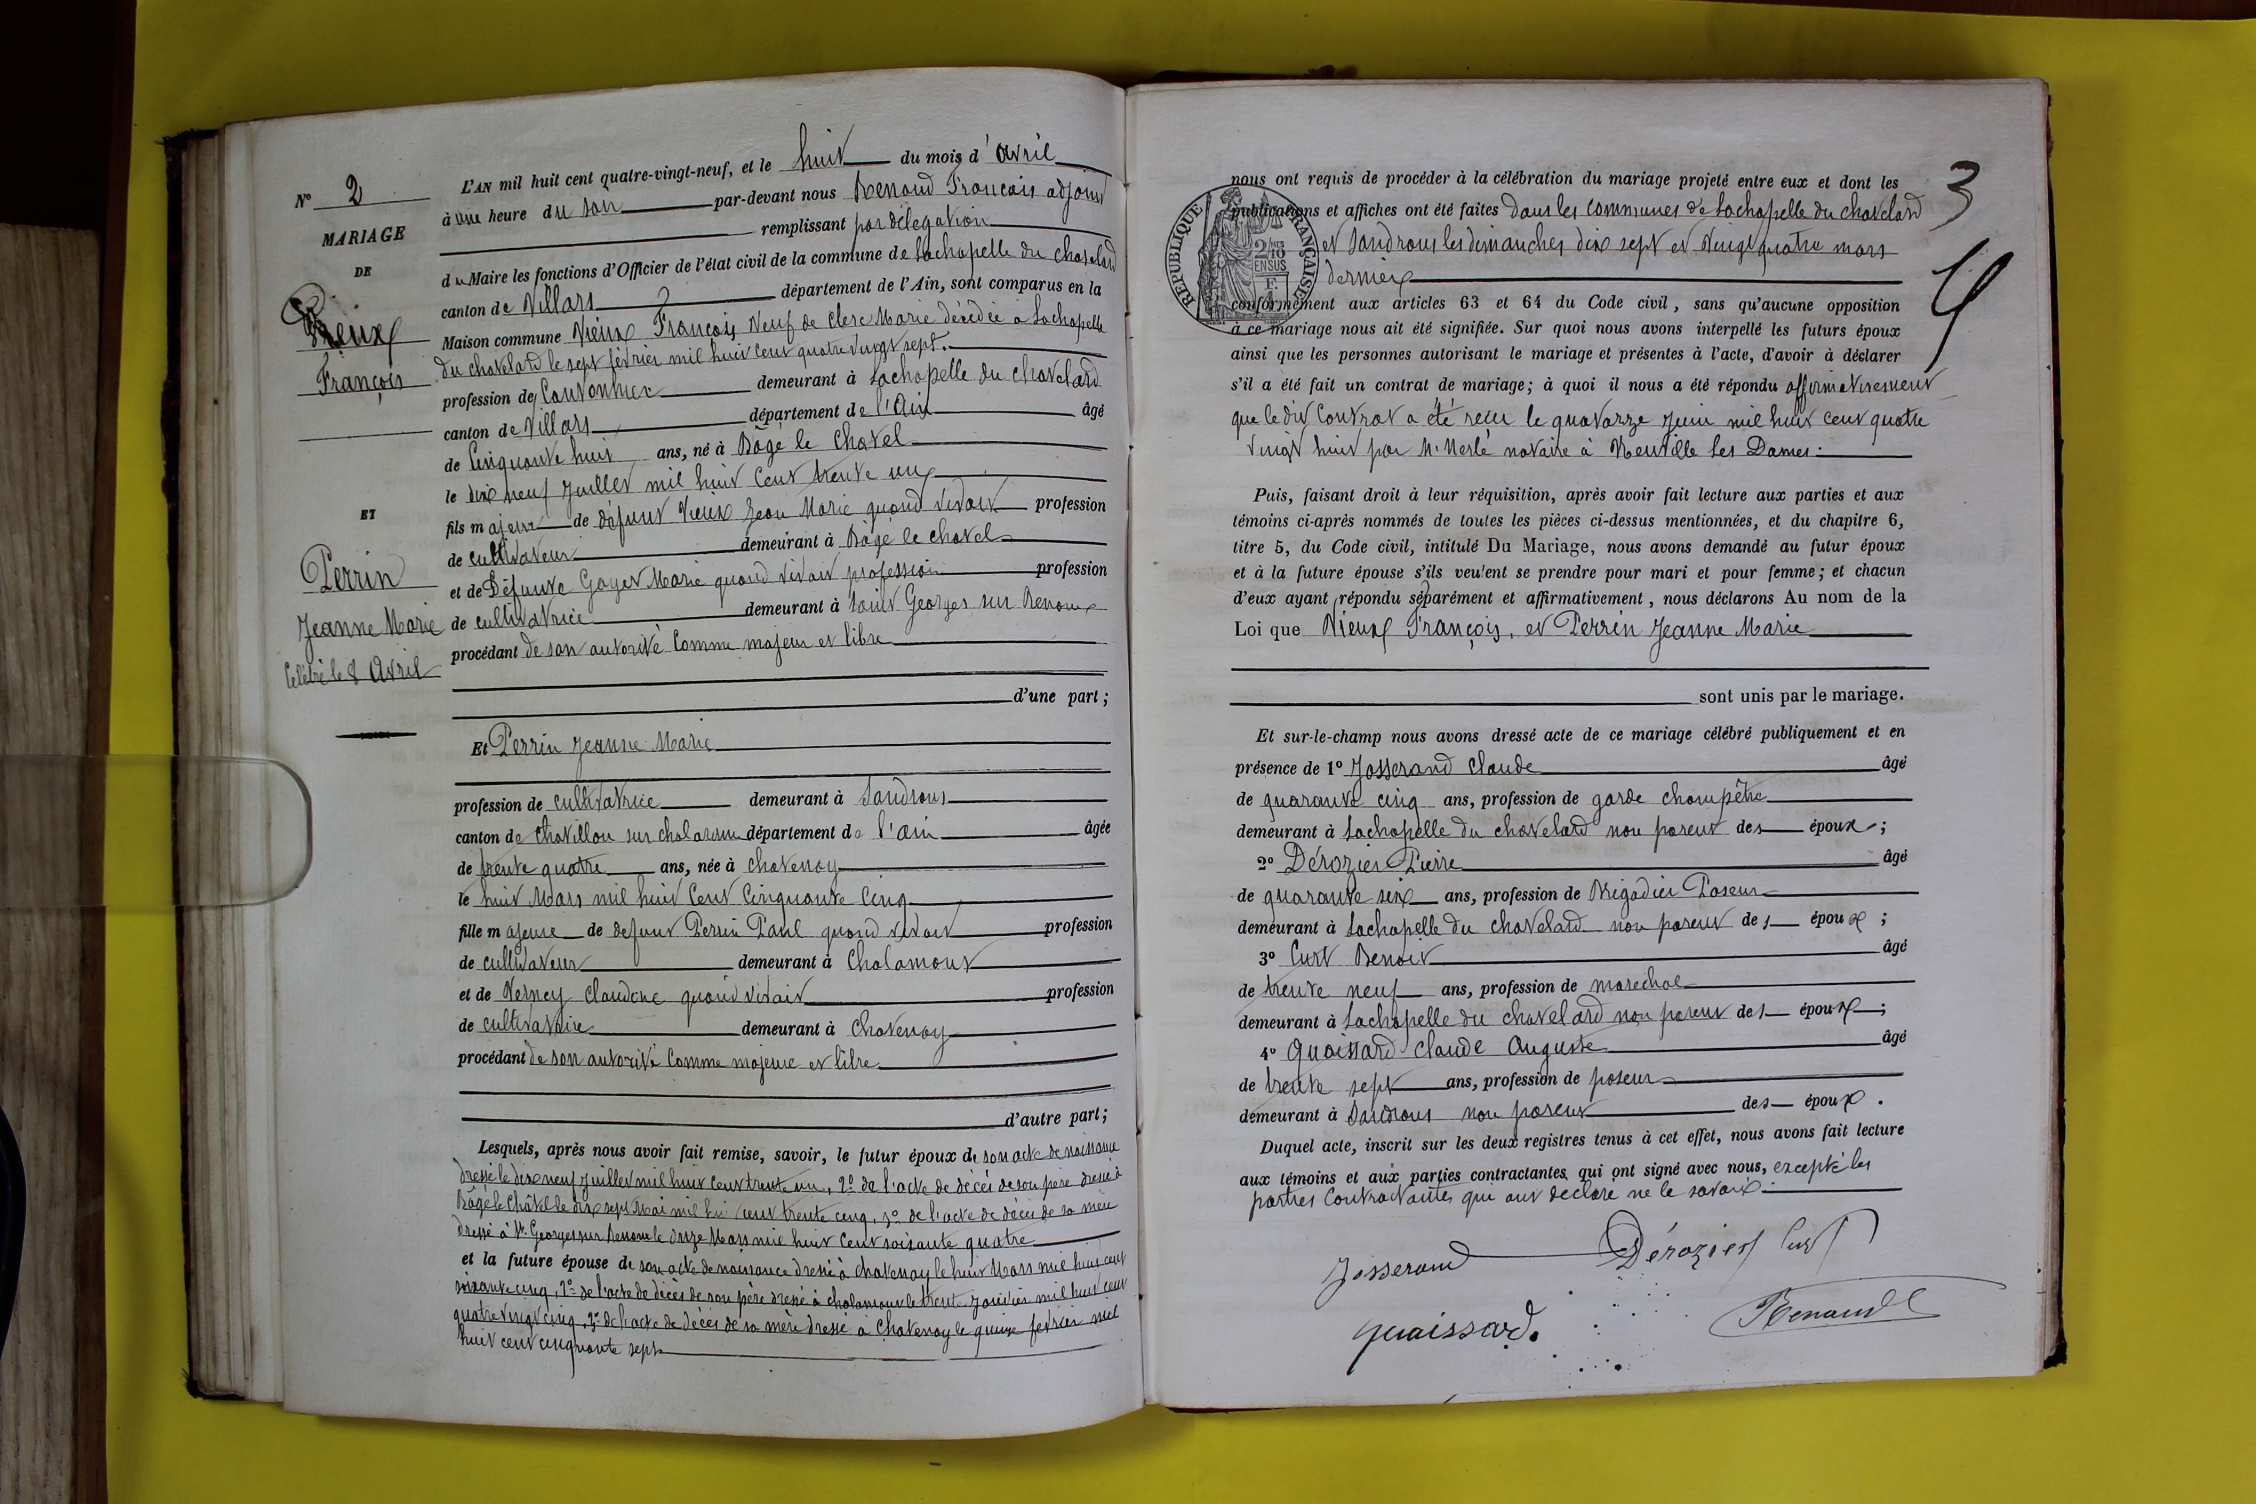 N° 2
MARIAGE
DE
Vieux
François
ET
Perrin
Jeanne Marie
Célébré le 8 Avril
L'AN mil huit cent quatre-vingt-neuf, et le huit du mois d'avril
à une heure du soir par-devant nous Renaud François adjoint
remplissant par délégation
du Maire les fonctions d'Officier de l'état civil de la commune de Lachapelle du chatelard
canton de Villars département de l'Ain, sont comparus en la
Maison commune Vieux François Veuf de Clerc Marie décédée à Lachapelle
du chatelard le sept février mil huit cent quatre vingt sept.
profession de Cantonnier demeurant à Lachapelle du chatelard
canton de Villars département de l'Ain âgé
de Cinquante huit ans, né à Bâgé le Chatel
le dix neuf Juillet mil huit cent trente un
fils majeur de défunt Vieux Jean Marie quand vivait profession
de cultivateur demeurant à Bâgé le chatel
et de Défunte Goyet Marie quand vivait profession profession
de cultivatrice demeurant à Saint Georges sur Renom
procédant de son autorité comme majeur et libre
d'une part;
Et Perrin Jeanne Marie
profession de cultivatrice demeurant à Sandrans
canton de chatillon sur chalaronne département de l'ain âgée
de trente quatre ans, née à chatenay
le huit Mars mil huit cent cinquante cinq
fille majeure de defunt Perrin Paul quand vivait profession
de cultivateur demeurant à Chalamont
et de Verney Claudine quand vivait profession
de cultivatrice demeurant à Chatenay
procédant de son autorité comme majeure et libre
d'autre part;
Lesquels, après nous avoir fait remise, savoir, le futur époux de son acte de naissance
dressé le dix neuf juillet mil huit cent trente un, 2° de l'acte de décès de son père dressé à
Bâgé le Châtel le dix sept Mai mil hui cent trente cinq, 3° de l'acte de décès de sa mère
dressé à St. Georges sur Renom le onze Mars mil huit cent soixante quatre
et la future épouse de son acte de naissance dressé à chatenay le huit Mars mil huit cent
soixante cinq, 2° de l'acte de décès de son père dressé à chalamont le trente Janvier mil huit cent
quatre vingt cinq, 3° de l'acte de décès de sa mère dressé à Chatenay le quinze fevrier mil
huit cent cinquante sept
3
nous ont requis de procéder à la célébration du mariage projeté entre eux et dont les
publications et affiches ont été faites dans les communes de Lachapelle du chatelard
et Sandrans les dimanches dix sept et vingt quatre mars
dernier
RÉPUBLIQUE FRANÇAISE
conformément aux articles 63 et 64 du Code civil, sans qu'aucune opposition
à ce mariage nous ait été signifiée. Sur quoi nous avons interpellé les futurs époux
ainsi que les personnes autorisant le mariage et présentes à l'acte, d'avoir à déclarer
s'il a été fait un contrat de mariage; à quoi il nous a été répondu affirmativement
que le dit contrat a été reçu le quatorze Juin mil huit cent quatre
vingt huit par Mr Merlé notaire à Neuville les Dames.
Puis, faisant droit à leur réquisition, après avoir fait lecture aux parties et aux
témoins ci-après nommés de toutes les pièces ci-dessus mentionnées, et du chapitre 6,
titre 5, du Code civil, intitulé Du Mariage, nous avons demandé au futur époux
et à la future épouse s'ils veulent se prendre pour mari et pour femme; et chacun
d'eux ayant répondu séparément et affirmativement, nous déclarons Au nom de la
Loi que Vieux François, et Perrin Jeanne Marie
sont unis par le mariage.
Et sur-le-champ nous avons dressé acte de ce mariage célébré publiquement et en
présence de 1° Josserand Claude âgé
de quarante cinq ans, profession de garde champêtre
demeurant à Lachapelle du chatelard non parent des époux;
2° Dérozier Pierre âgé
de quarante six ans, profession de Brigadier Poseur
demeurant à Lachapelle du chatelard non parent des époux;
3° Curt Benoit âgé
de trente neuf ans, profession de marechal
demeurant à Lachapelle du chatelard non parent des époux;
4° Quaissard Claude Auguste âgé
de trente sept ans, profession de poseur
demeurant à Sandrans non parent des époux.
Duquel acte, inscrit sur les deux registres tenus à cet effet, nous avons fait lecture
aux témoins et aux parties contractantes qui ont signé avec nous, excepté les
parties contractantes qui ont declaré ne le savoir.
Josserand Dérozier Curt
Quaissard. Renaud